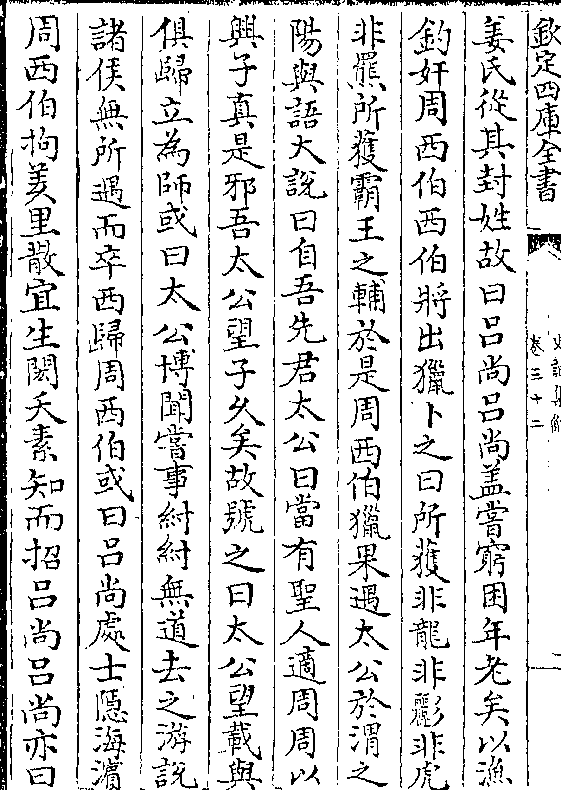 欽定四庫全書
史記集解
卷三十二
姜氏從其封姓故曰吕尚吕尚盖嘗窮困年老矣以漁
釣奸周西伯西伯將出獵卜之曰所獲非龍非彲非虎
非羆所獲霸王之輔於是周西伯獵果遇太公於渭之
陽與語大說曰自吾先君太公曰當有聖人適周周以
興子真是邪吾太公望子乆矣故號之曰太公望載與
俱歸立為師或曰太公博聞嘗事紂紂無道去之游說
諸侯無所遇而卒西歸周西伯或曰吕尚處士隱海濱
周西伯拘羑里散宜生閎夭素知而招吕尚吕尚亦曰